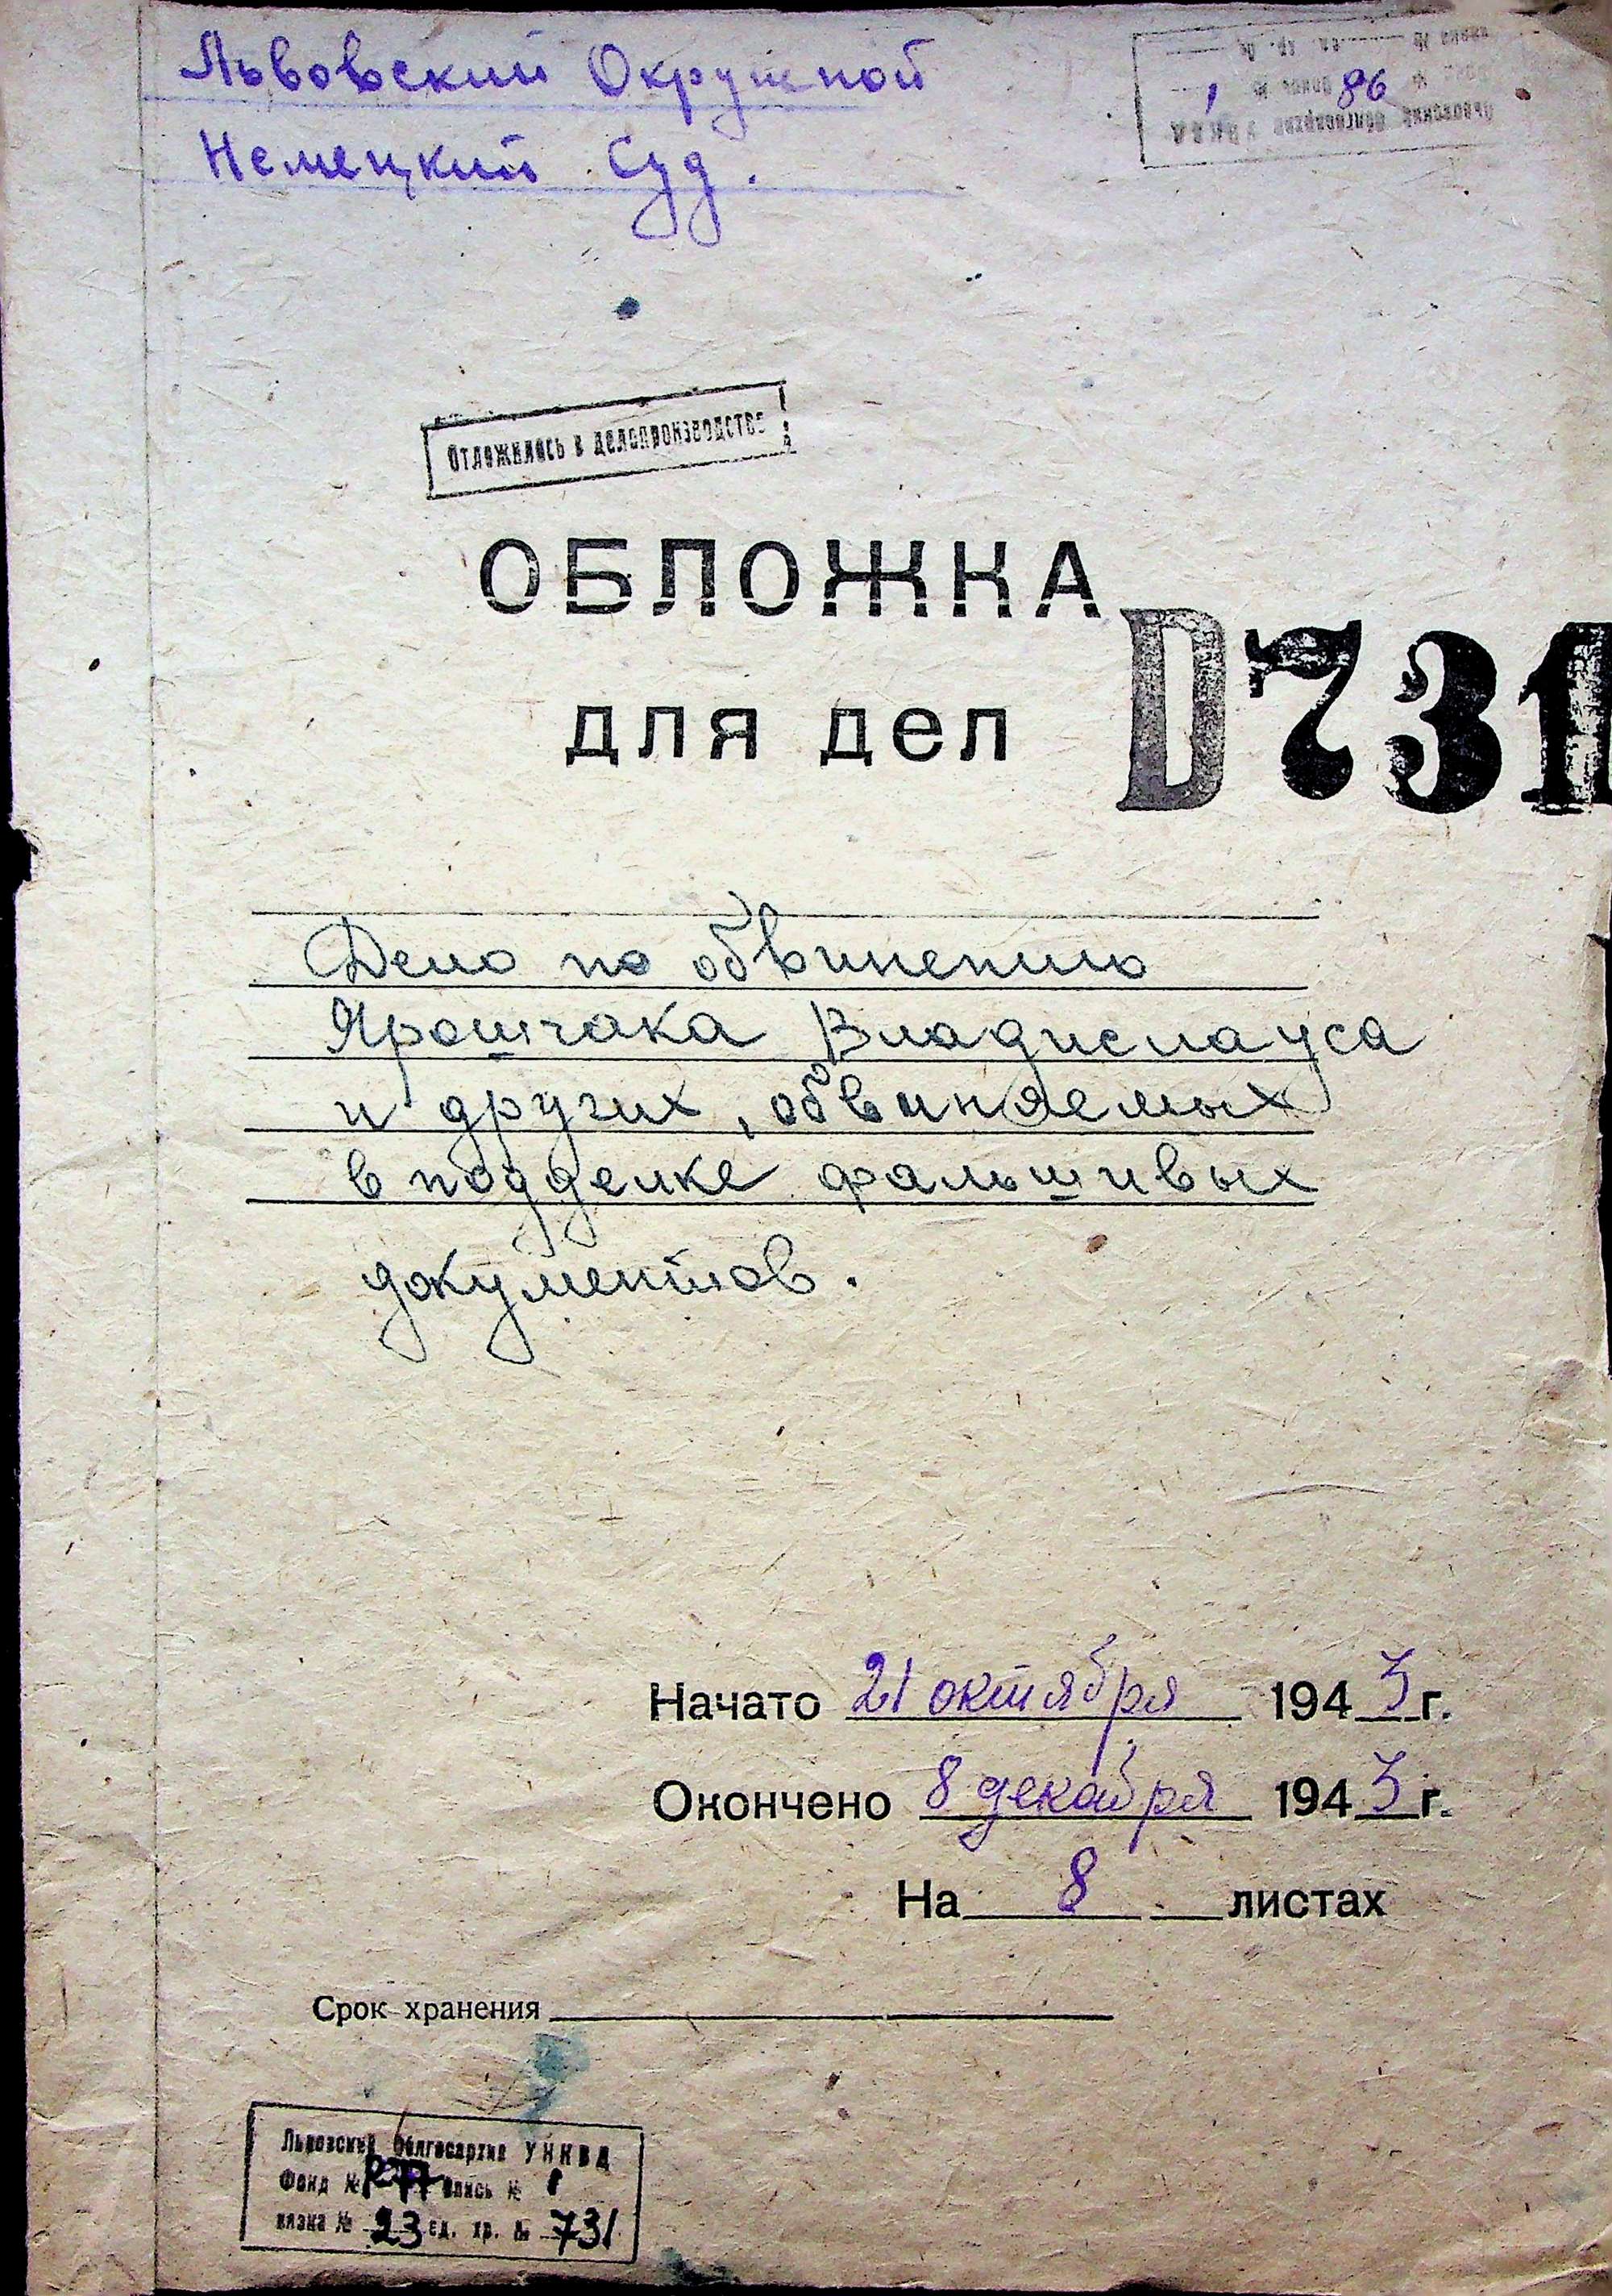 Львовский Окружной
Немецкий Суд.
86
Отложилось в делопроизводстве
ОБЛОЖКА
для дел
D731
Дело по обвинению
Ярошчака Владислауса
и других, обвиняемых
в подделке фальшивых
документов.
Начато 21 октября 1943 г.
Окончено 8 декабря 1943 г.
На 8 листах
Срок хранения
Львовский Облгосархив УНКВД
Фонд № Р77 опись № 1
вязка № 23 ед. хр. № 731